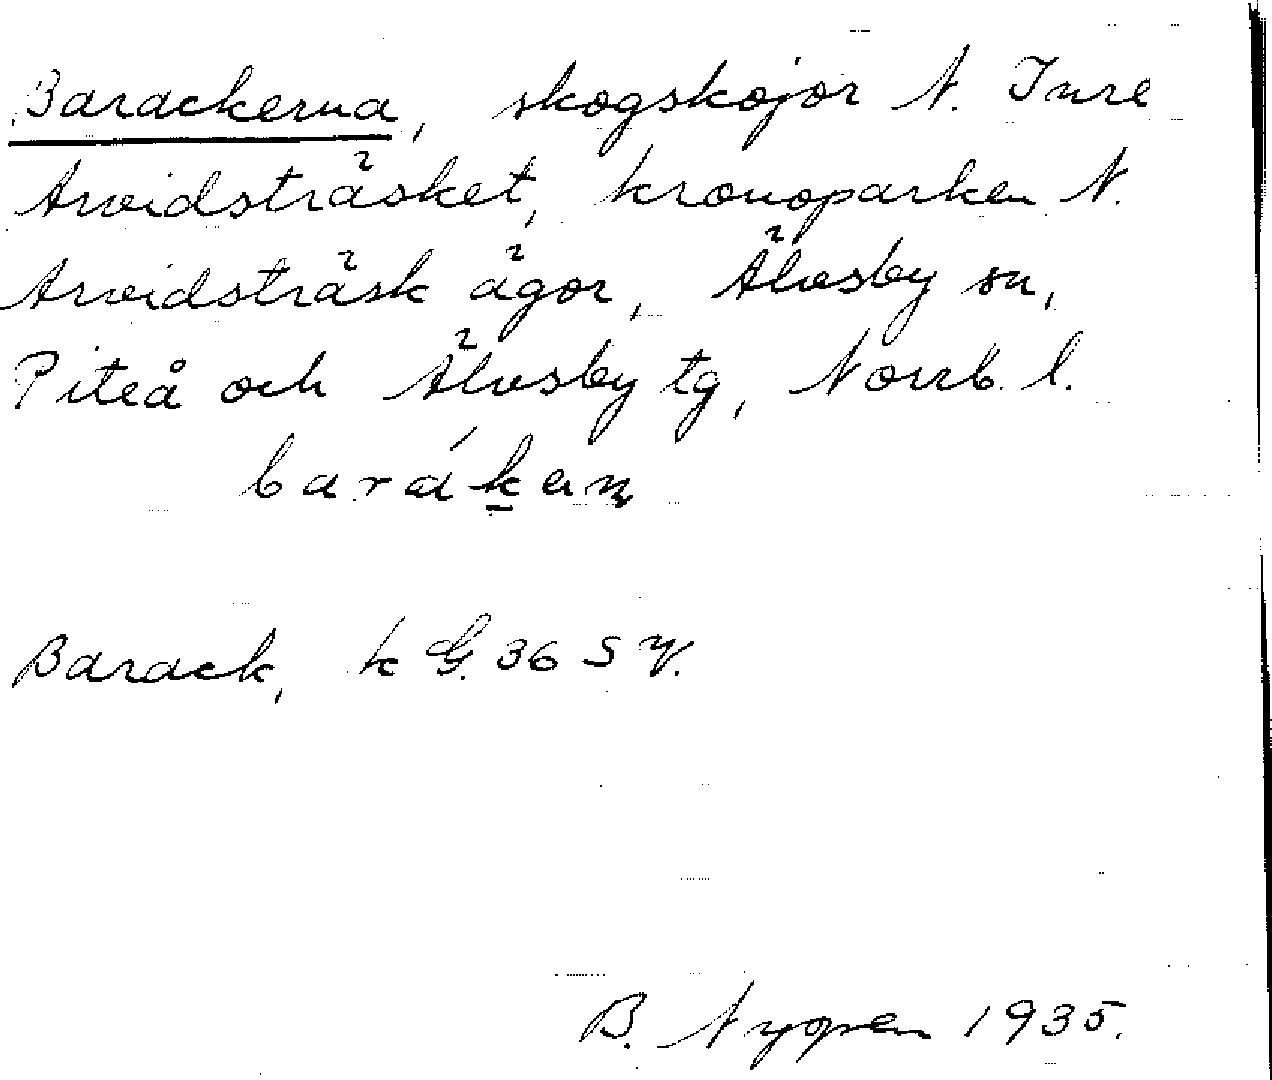 Barackerna, skogskojor N. Inre
Arvidsträsket, kronoparken N.
Arvidsträsk ägor, Älvsby sn,
Piteå och Älvsby tg, Norrb. l.
barák en
Barack, k G. 36 S V.
B. Nygren 1935.